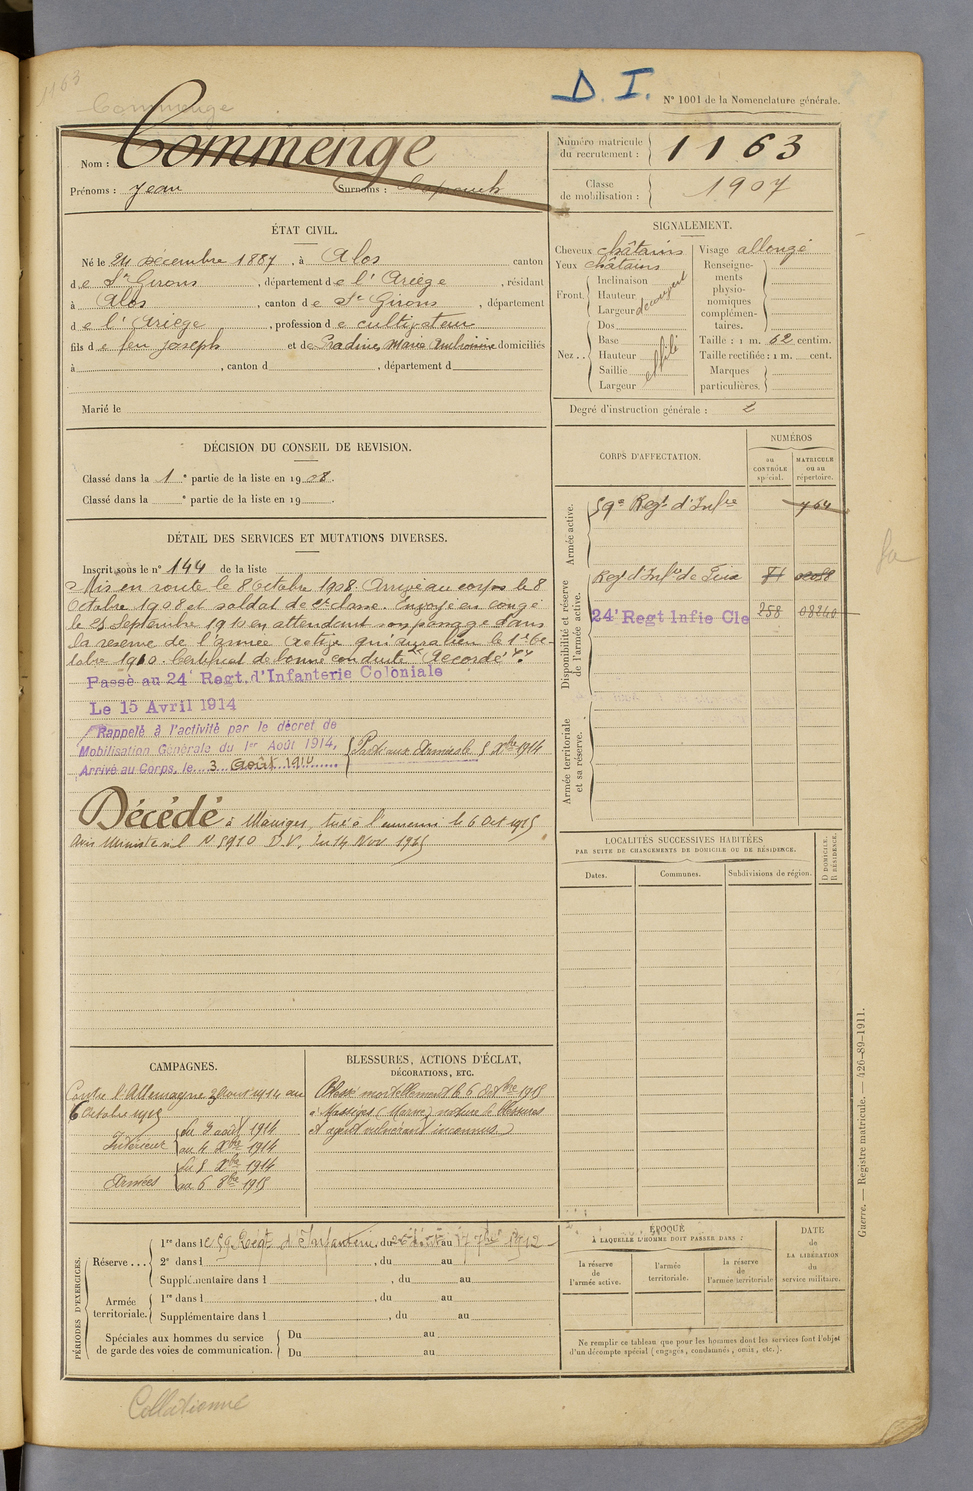 1163
Commenge
D. I.
N° 1001 de la Nomenclature générale.
Nom : Commenge
Prénoms : Jean Surnoms :
Numéro matricule du recrutement : 1163
Classe de mobilisation : 1907
ÉTAT CIVIL.
Né le 24 décembre 1887, à Alos canton
de St Girons, département de l'Ariège, résidant
à Alos, canton de St Girons, département
de l'Ariège, profession de cultivateur
fils de feu Joseph et de Pradine, Marie domiciliés
à , canton d , département d
Marié le
SIGNALEMENT.
Cheveux châtains
Yeux châtains
Front. Inclinaison
Hauteur
Largeur découvert
Nez.. Dos
Base
Hauteur effilé
Saillie
Largeur
Visage allongé
Renseignements physionomiques complémentaires.
Taille : 1 m. 62 centim.
Taille rectifiée : 1 m. cent.
Marques particulières.
Degré d'instruction générale : 2
DÉCISION DU CONSEIL DE REVISION.
Classé dans la 1e partie de la liste en 1908.
Classé dans la e partie de la liste en 19 .
CORPS D'AFFECTATION.
NUMÉROS
au CONTRÔLE spécial.
MATRICULE ou au répertoire.
Armée active.
59e Regt d'Infie 764
Disponibilité et réserve de l'armée active.
Regt d'Infie de
24e Regt Infie Cle 258 08240
Armée territoriale et sa réserve.
DÉTAIL DES SERVICES ET MUTATIONS DIVERSES.
Inscrit sous le n° 144 de la liste
Mis en route le 8 Octobre 1908. Arrivé au corps le 8
Octobre 1908 et soldat de 2e classe. Envoyé en congé
le 25 Septembre 1910 en attendant son passage dans
la réserve de l'armée active qui aura lieu le 1er Oc-
tobre 1910. Certificat de bonne conduite "Accordé".
Passé au 24e Regt. d'Infanterie Coloniale
Le 15 Avril 1914
Rappelé à l'activité par le décret de
Mobilisation Générale du 1er Août 1914,
Arrivé au Corps, le 3 Août 1914
Parti aux Armées le 5 Xbre 1914
Décédé à Massiges, tué à l'ennemi le 6 Oct 1915
Avis Ministériel N 5910 D.V. du 14 Nov. 1915
LOCALITÉS SUCCESSIVES HABITÉES
PAR SUITE DE CHANGEMENTS DE DOMICILE OU DE RÉSIDENCE.
Dates. Communes. Subdivisions de région. D DOMICILE. R RÉSIDENCE.
CAMPAGNES.
Contre l'Allemagne 3 Aout 1914 au
6 Octobre 1915
Intérieur du 3 août 1914
au 4 Xbre 1914
Armées du 5 Xbre 1914
au 6 8bre 1915
BLESSURES, ACTIONS D'ÉCLAT,
DÉCORATIONS, ETC.
Blessé mortellement le 6 Octbre 1915
à Massiges (Marne) nature de blessures
et agent vulnérant inconnus
PÉRIODES D'EXERCICES.
Réserve ... 1re dans le 59 Régt d'Infanterie, du au 17 7bre 1912
2e dans l , du au
Supplémentaire dans l , du au
Armée territoriale. 1re dans l , du au
Supplémentaire dans l , du au
Spéciales aux hommes du service de garde des voies de communication. Du au
Du au
ÉPOQUE
À LAQUELLE L'HOMME DOIT PASSER DANS :
la réserve de l'armée active.
l'armée territoriale.
la réserve de l'armée territoriale
DATE de LA LIBÉRATION du service militaire.
Ne remplir ce tableau que pour les hommes dont les services font l'objet
d'un décompte spécial (engagés, condamnés, omis, etc.).
Guerre. — Registre matricule. — 426-89-1911.
Collationné